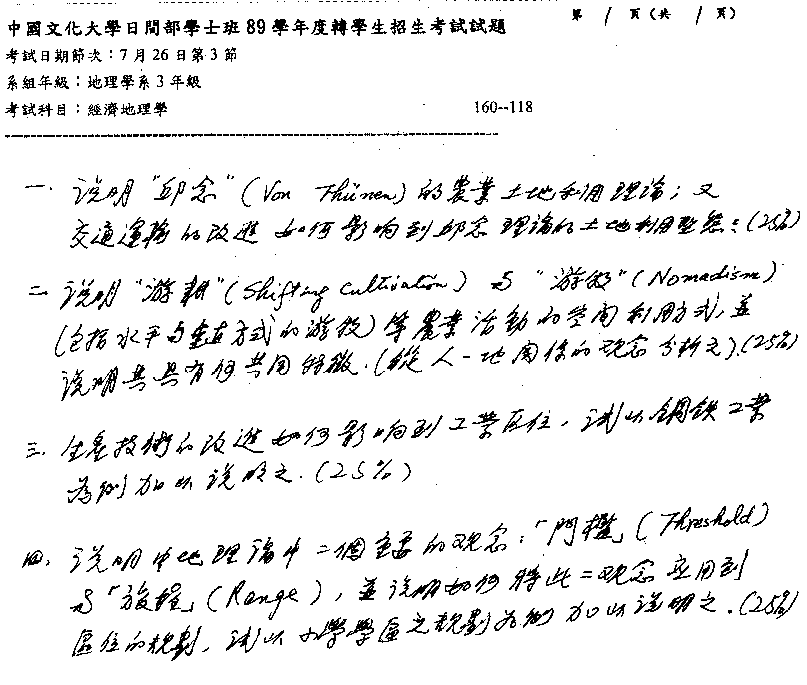 中國文化大學日間部學士班89學年度轉學生招生考試試題
第 1 頁(共 1 頁)
考試日期節次:7月26日第3節
系組年級:地理學系3年級
考試科目:經濟地理學
160--118
一. 說明"邱念"(Von Thünen)的農業土地利用理論;又
交通運輸的改進如何影响到邱念理論的土地利用型態?(25%)
二. 說明"游耕"(Shifting Cultivation)与"游牧"(Nomadism)
(包括水平与垂直方式的游牧)等農業活動的空间利用方式,並
說明其具有何共同特徵.(從人-地関係的观念分析之).(25%)
三. 生產技術的改進如何影响到工業区位,試以鋼鉄工業
為例加以說明之.(25%)
四. 說明中地理論中二個重要的观念:「門檻」(Threshold)
与「旅程」(Range),並說明如何將此二观念应用到
區位的規劃,試以小學學區之規劃為例加以說明之.(25%)